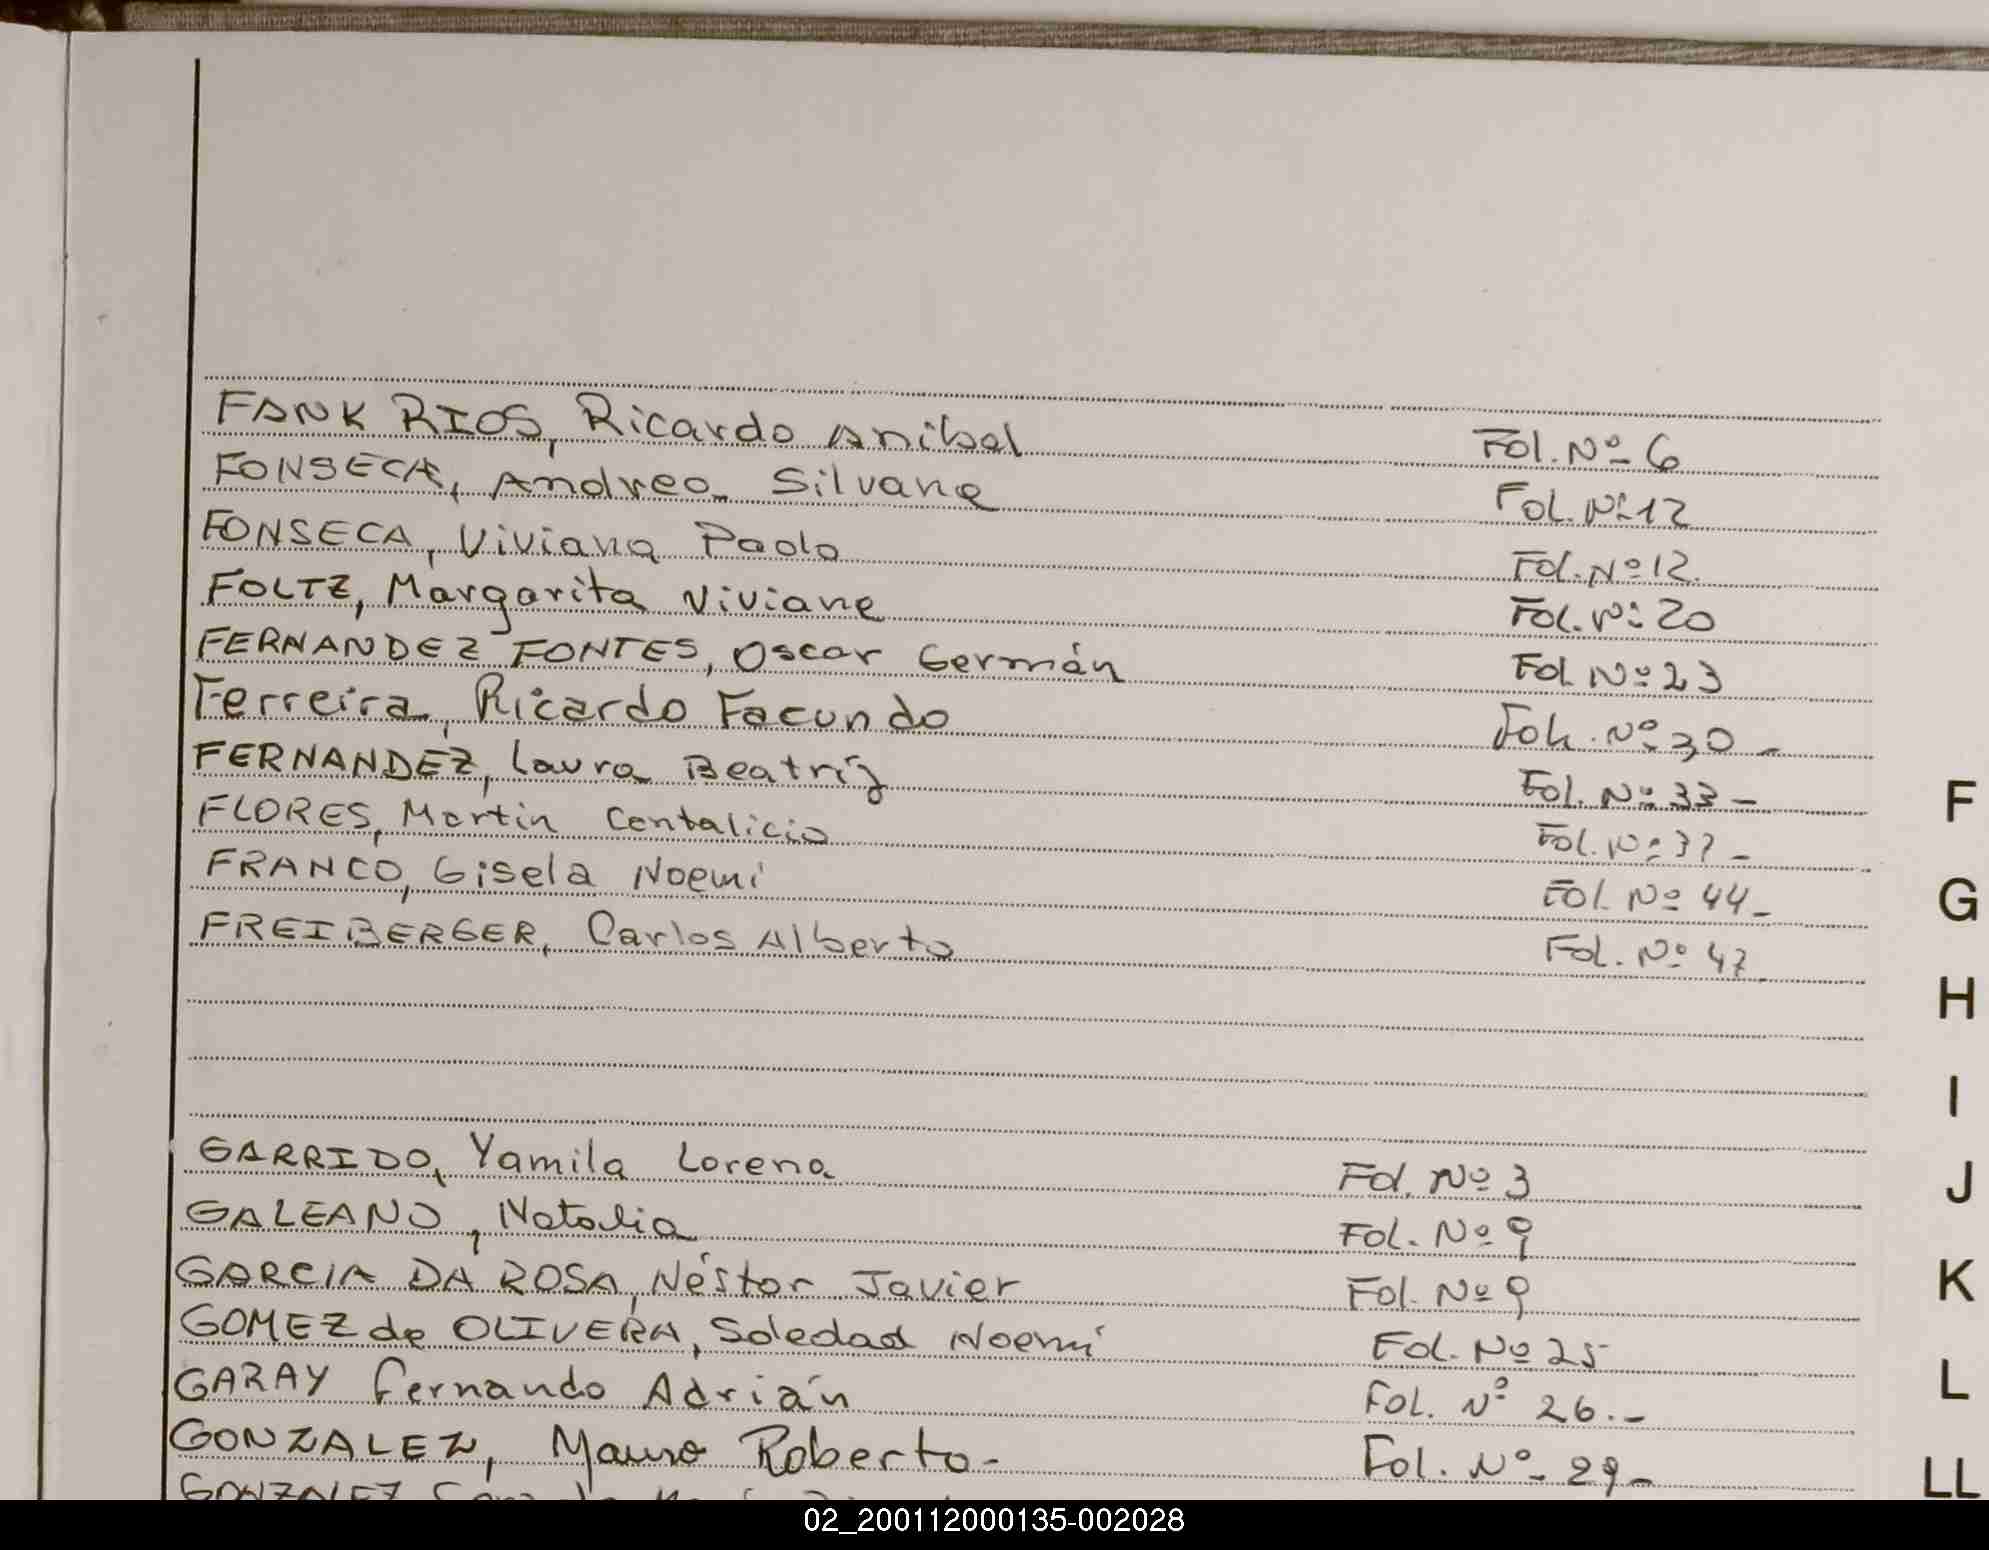 FANK RIOS, Ricardo Anibal Fol. Nº 6
FONSECA, Andrea Silvana Fol. Nº 12
FONSECA, Viviana Paola Fol. Nº 12
FOLTZ, Margarita Viviana Fol. Nº 20
FERNANDEZ FONTES, Oscar Germán Fol Nº 23
Ferreira, Ricardo Facundo Fol. Nº 30 -
FERNANDEZ, Laura Beatriz Fol. Nº 33 -
FLORES, Martin Cantalicio Fol. Nº 37 -
F
FRANCO, Gisela Noemi Fol. Nº 44 -
G
FREIBERGER, Carlos Alberto Fol. Nº 47
H
I
GARRIDO, Yamila Lorena Fol. Nº 3
J
GALEANO, Natalia Fol. Nº 9
GARCIA DA ROSA, Néstor Javier Fol. Nº 9
K
GOMEZ de OLIVERA, Soledad Noemi Fol. Nº 25
GARAY Fernando Adrián Fol. Nº 26.-
L
GONZALEZ, Mauro Roberto - Fol. Nº 29 -
LL
GONZALEZ
02_200112000135-002028